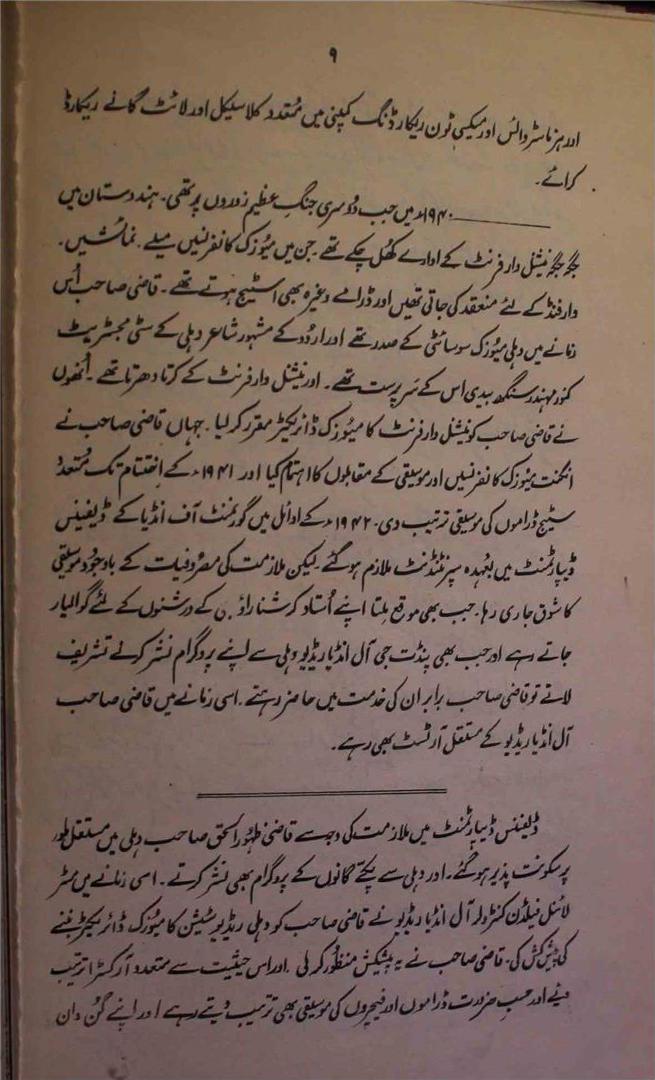 ۹
اور ہز ماسٹر وائس اور میکسی ٹون ریکارڈنگ کمپنی میں مُتعدد کلاسیکل اور لائٹ گانے ریکارڈ
کرائے۔
۱۹۴۰ء میں جب دُوسری جنگِ عظیم زوروں پر تھی۔ ہندوستان میں
جگہ جگہ نیشنل وار فرنٹ کے ادارے کھُل چکے تھے۔ جن میں میُوزک کانفرنسیں میلے۔ نمائشیں۔
وار فنڈ کے لئے منعقد کی جاتی تھیں اور ڈرامے وغیرہ بھی اسٹیج ہوتے تھے۔ قاضی صاحب اُس
زمانے میں دہلی میُوزک سوسائٹی کے صدر تھے اور اردُو کے مشہور شاعر دہلی کے سٹی مجسٹریٹ
کنور مہندر سنگھ بیدی اس کے سَرپرست تھے۔ اور نیشنل وار فرنٹ کے کرتا دھرتا تھے۔ اُنھوں
نے قاضی صاحب کو نیشنل وار فرنٹ کا میُوزک ڈائریکٹر مقرر کر لیا۔ جہاں قاضی صاحب نے
انگنت میُوزک کانفرنسیں اور موسیقی کے مقابلوں کا اہتمام کیا اور ۱۹۴۱ء کے اِختتام تک مُتعدد
سٹیج ڈراموں کی موسیقی ترتیب دی۔ ۱۹۴۲ء کے اوائل میں گورنمنٹ آف انڈیا کے ڈیفینس
ڈیپارٹمنٹ میں بعُہدہ سپرنٹنڈنٹ ملازم ہو گئے۔ لیکن ملازمت کی مصرُوفیات کے باوجُود موسیقی
کا شوق جاری رہا۔ جب بھی موقع ملتا اپنے اُستاد کرشنا راؤ جی کے درشنوں کے لئے گوالیار
جاتے رہے اور جب بھی پنڈت جی آل انڈیا ریڈیو دہلی سے اپنے پروگرام نشر کرنے تشریف
لاتے تو قاضی صاحب برابر ان کی خدمت میں حاضر رہتے۔ اسی زمانے میں قاضی صاحب
آل انڈیا ریڈیو کے مستقل آرٹسٹ بھی رہے۔
ڈیفنس ڈیپارٹمنٹ میں ملازمت کی وجہ سے قاضی ظہُور الحق صاحب دہلی میں مستقل طور
پر سکونت پذیر ہو گئے۔ اور دہلی سے پکّے گانوں کے پروگرام بھی نشر کرتے۔ اسی زمانے میں مسٹر
لائنل فیلڈن کنٹرولر آل انڈیا ریڈیو نے قاضی صاحب کو دہلی ریڈیو سٹیشن کا میُوزک ڈائریکٹر بننے
کی پیش کش کی۔ قاضی صاحب نے یہ پیشکش منظُور کر لی اور اس حیثیت سے متعدد آرکسٹرا ترتیب
دیئے اور حسبِ ضرورت ڈراموں اور فیچروں کی موسیقی بھی ترتیب دیتے رہے اور اپنے گُن دان